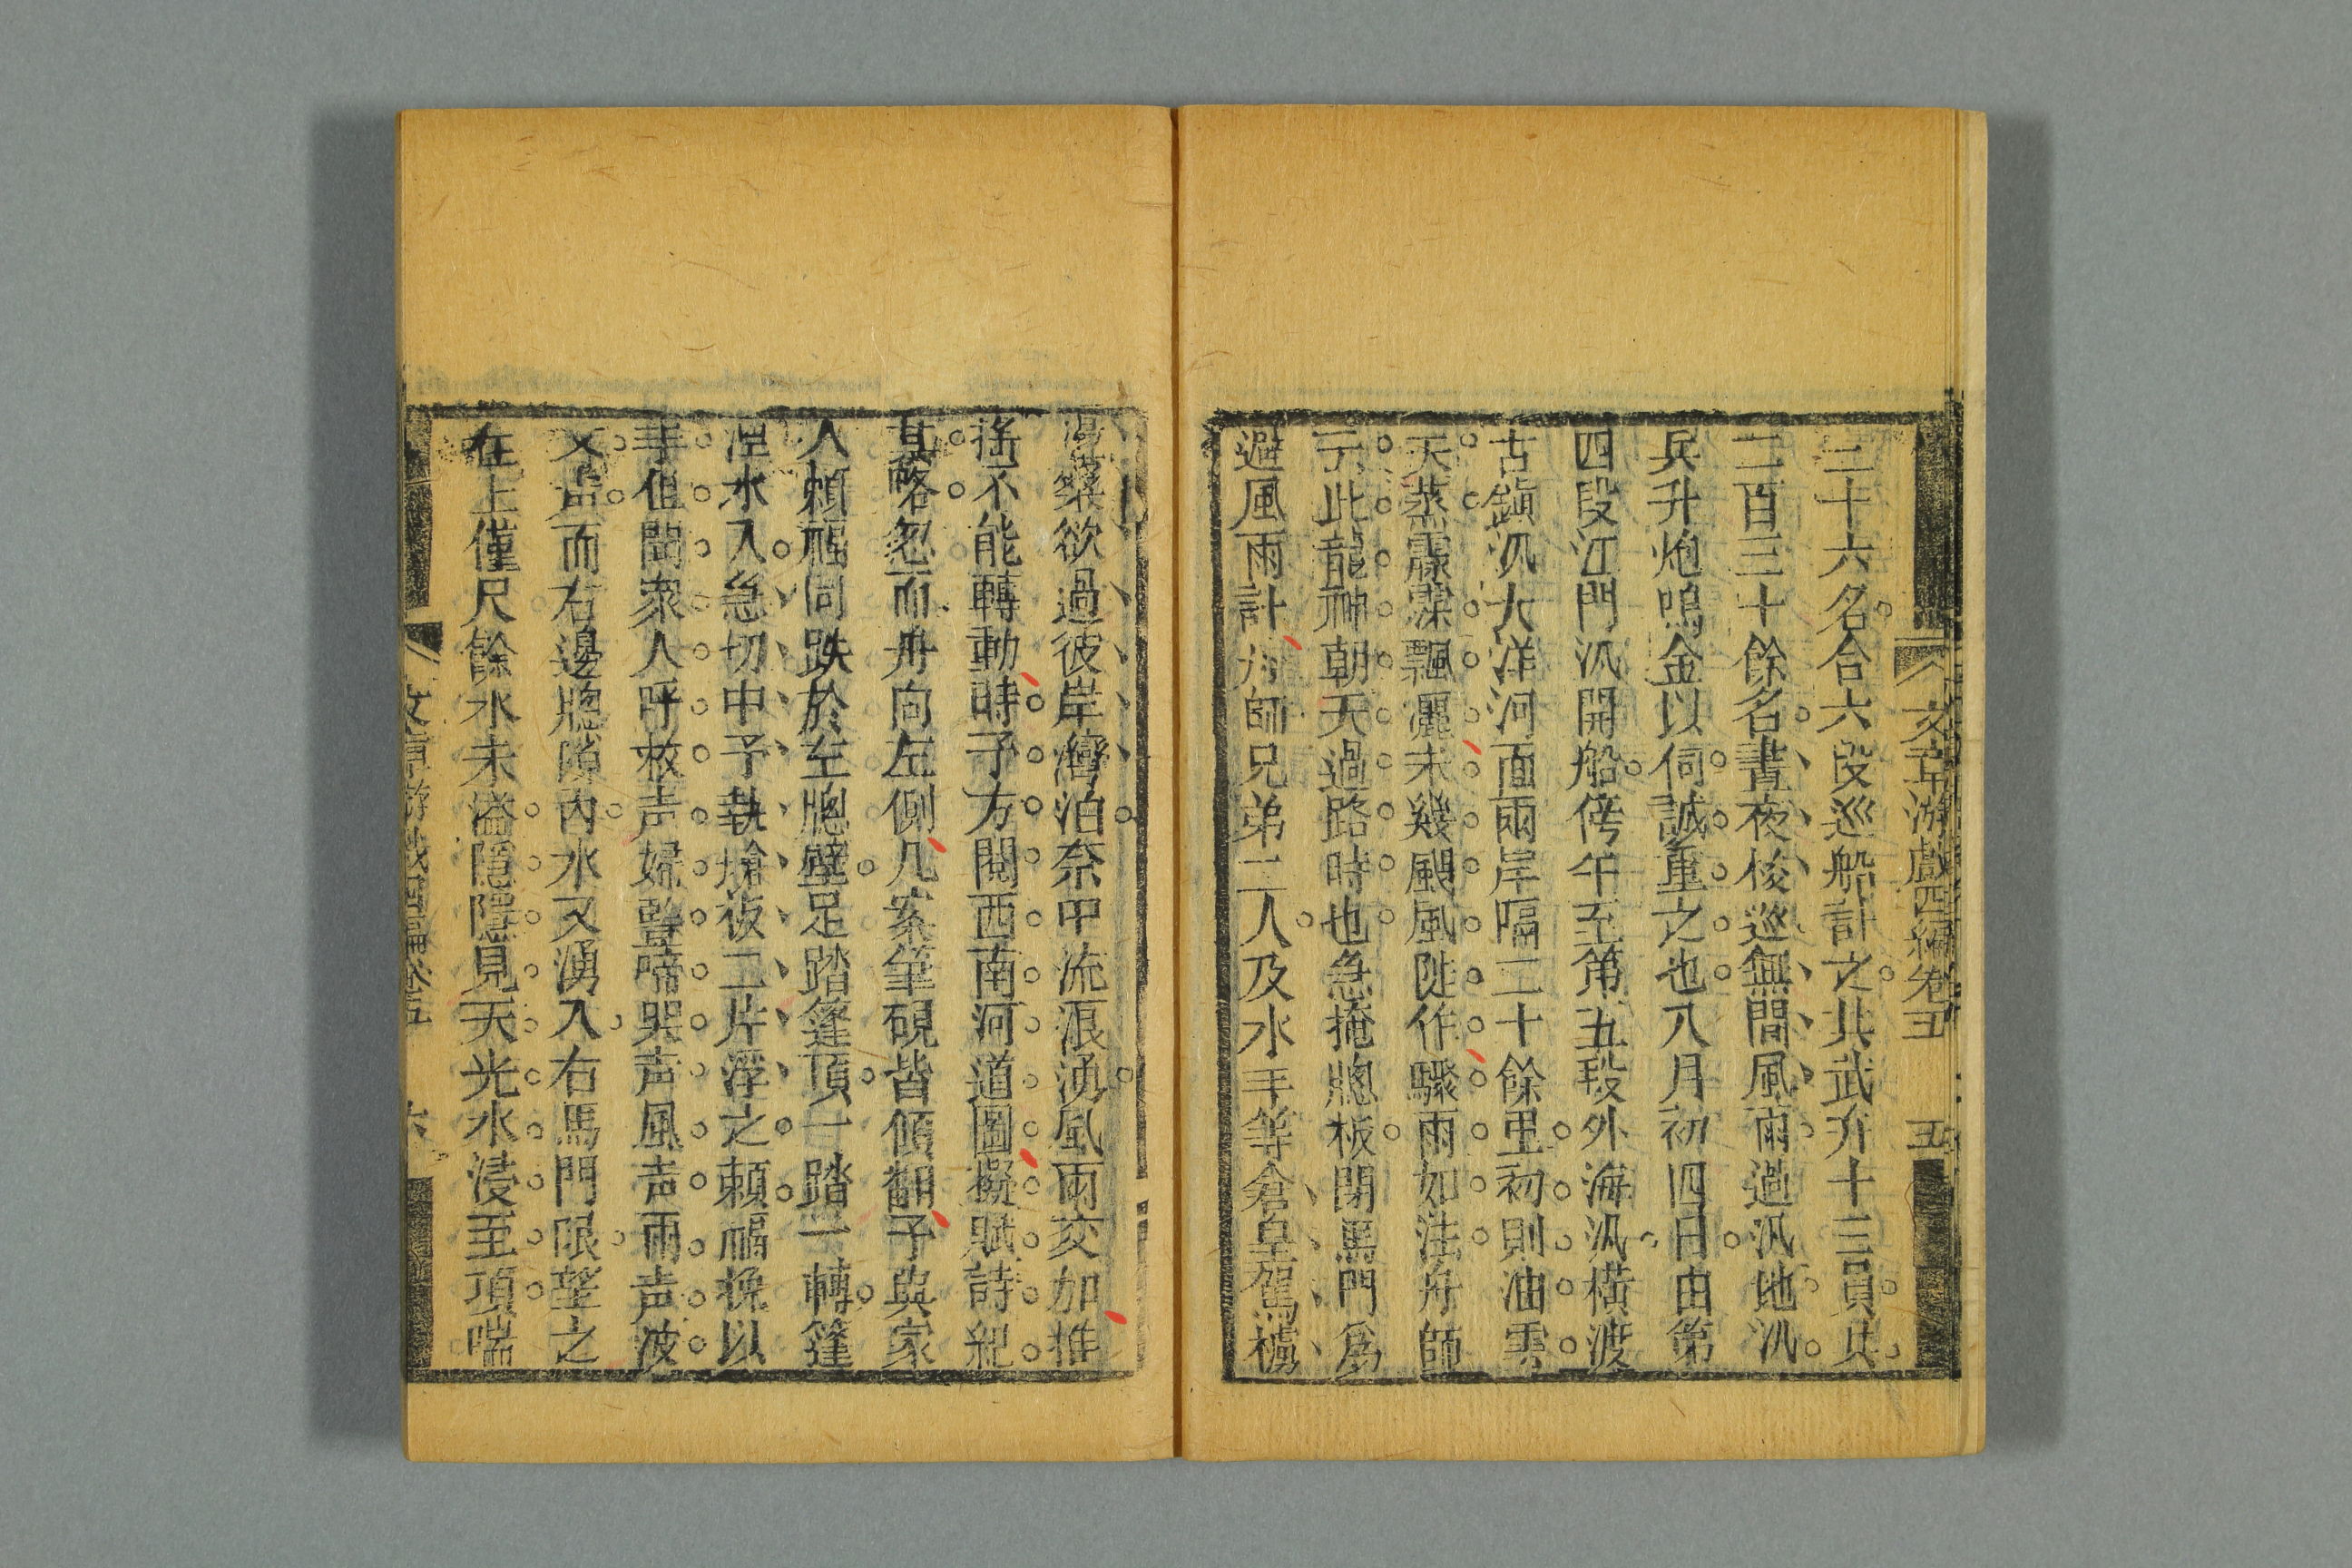 文章游戲四編卷五
五
三十六名合六段巡船計之共武弁十三員共
二百三十餘名晝夜梭巡無間風雨過汛地汛
兵升炮鳴金以伺誠重之也八月初四日由第
四段江門汛開船傍午至第五段外海汛橫渡
古鎭汛大洋河面兩岸隔二十餘里初則油雲
天蒸霢霂飄灑未幾颶風陡作驟雨如注舟師
云此龍神朝天過路時也急掩牕板閉馬門爲
避風雨計舟師兄弟二人及水手等倉皇駕櫓
蕩槳欲過彼岸灣泊奈中流浪湧風雨交加推
搖不能轉動時予方閱西南河道圖擬賦詩紀
其略忽而舟向左側几案筆硯皆傾翻予與家
人賴福同跌於左牕壁足踏篷頂一踏一轉篷
浸水入急切中予執艙板二片浮之賴福挽以
手但聞衆人呼救声婦豎啼哭声風声雨声波
文声而右邊牕隙內水又湧入右馬門限望之
在上僅尺餘水未溢隱隱見天光水浸至項喘
文章游戲四編卷五
六